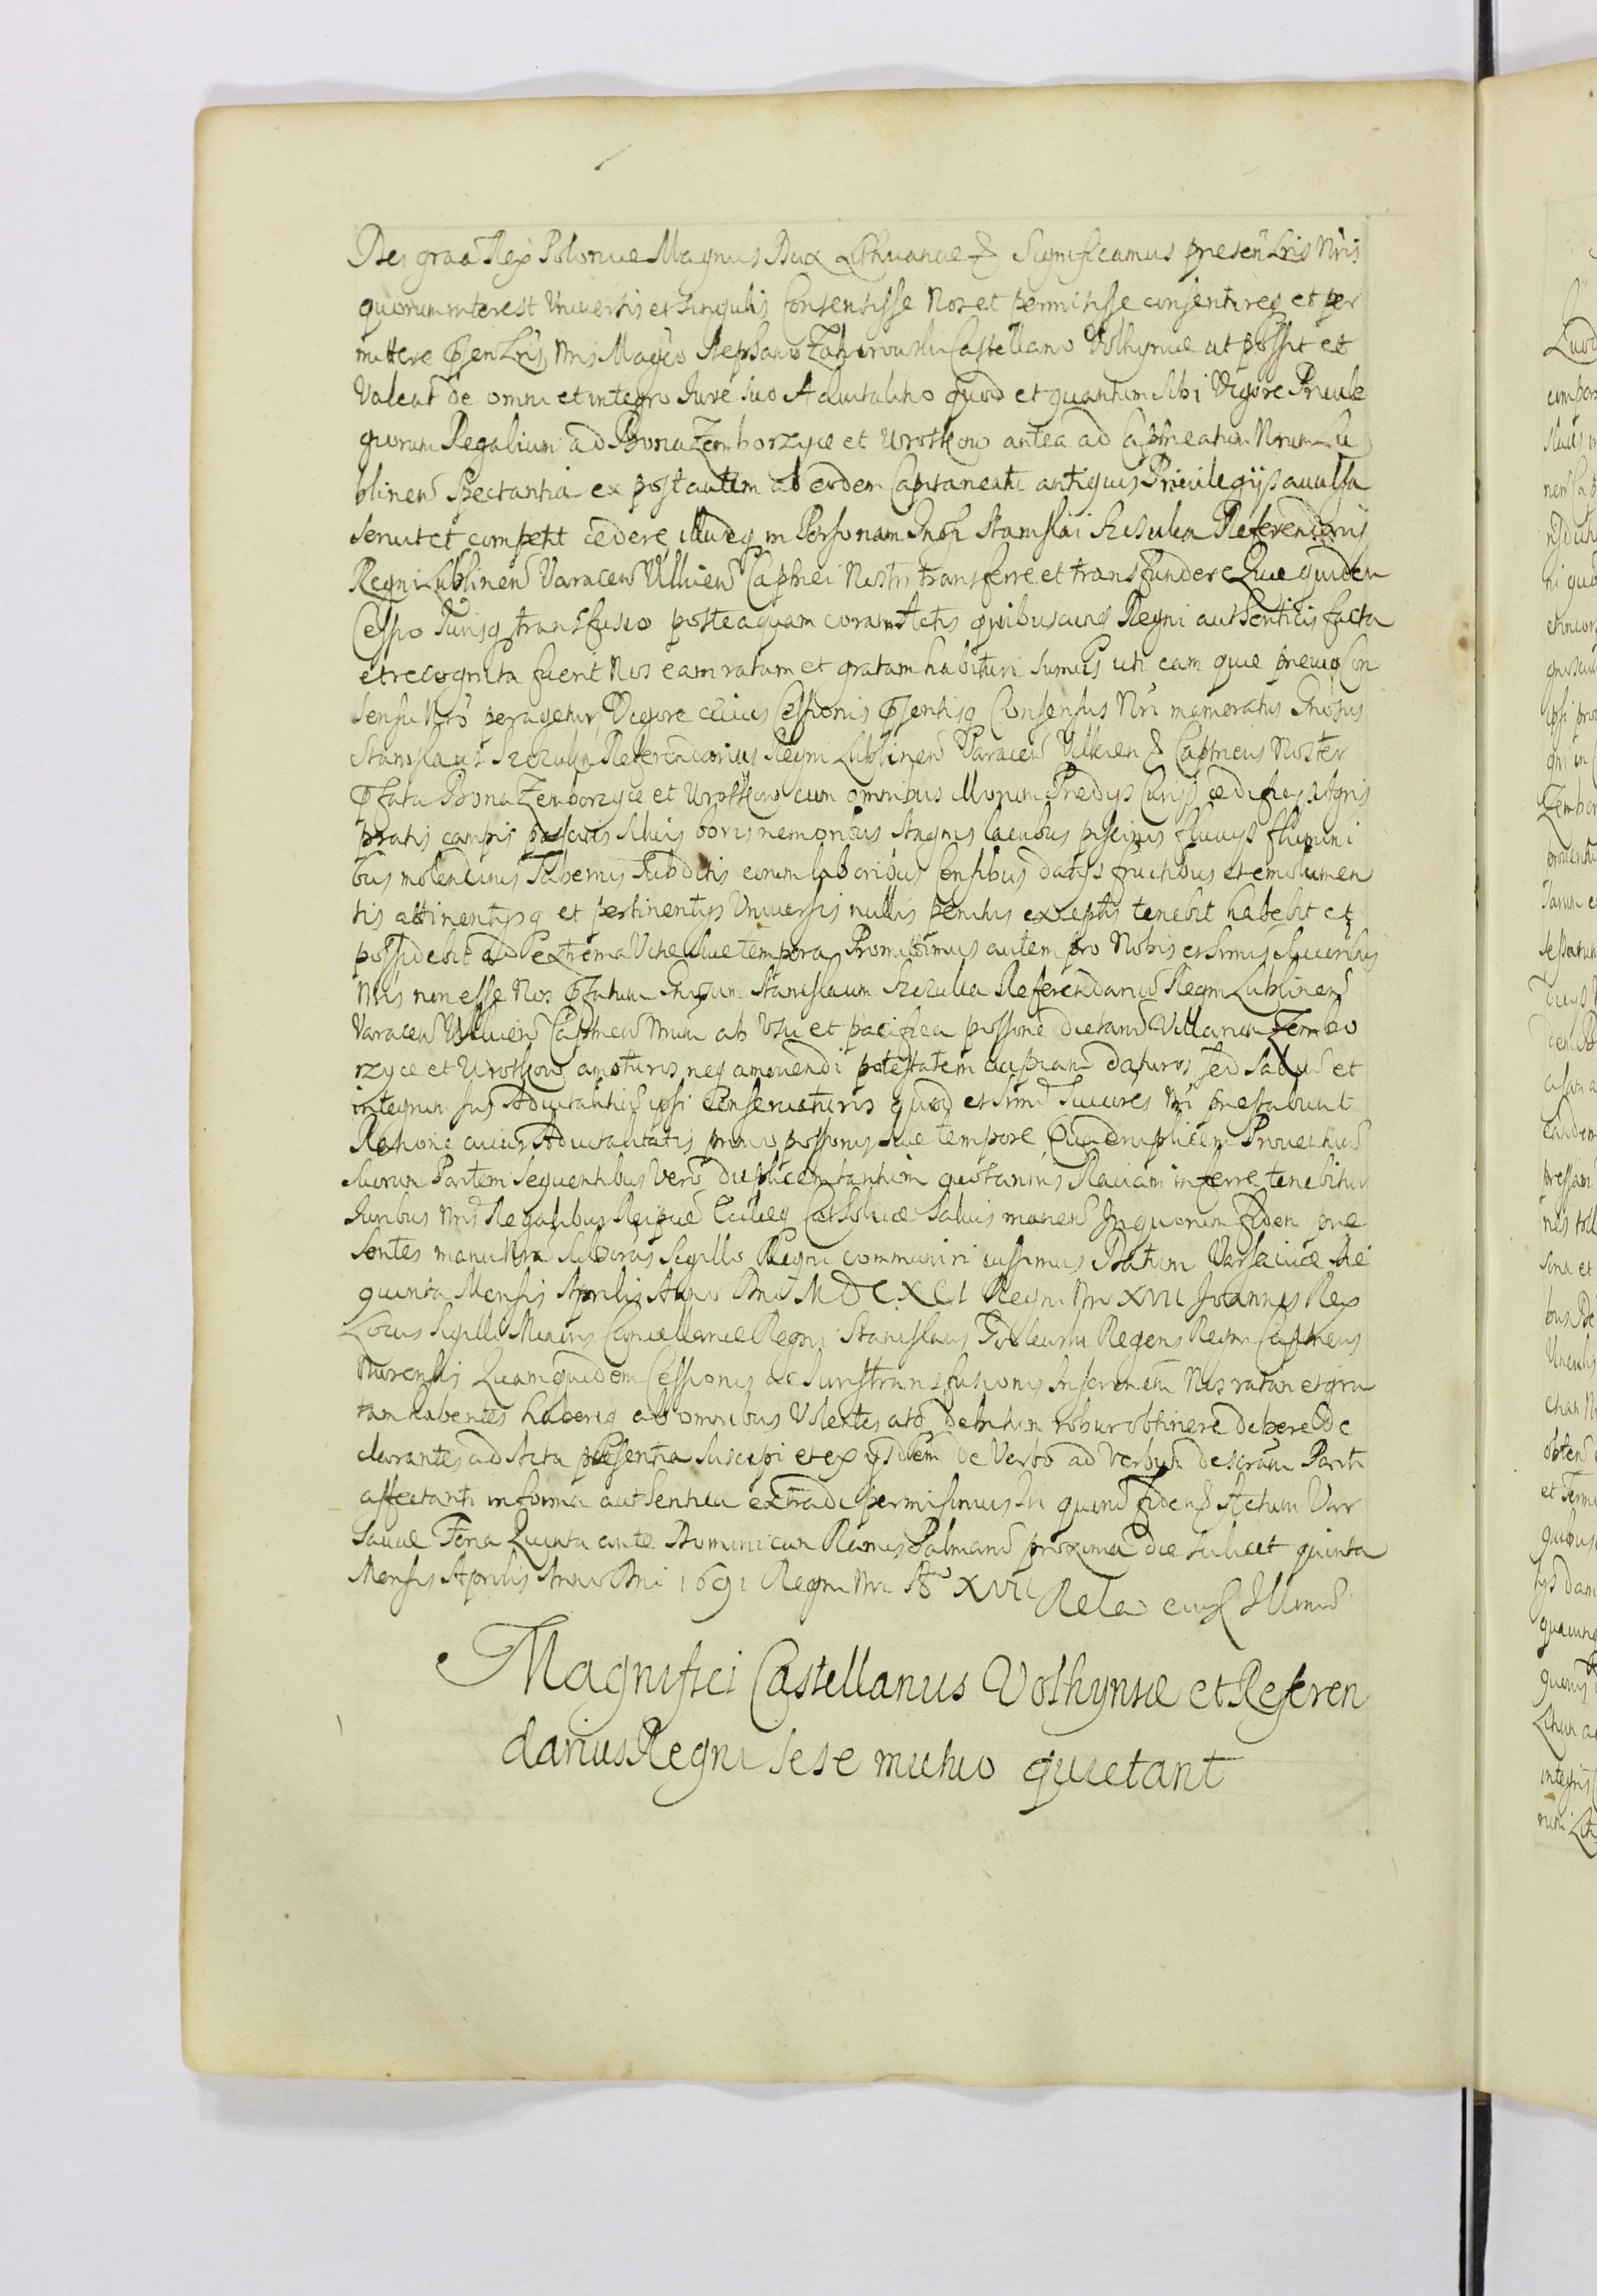 Dei graa Rex Poloniae Magnus Dux Lithuaniae & Significamus presen Lris Nris
quorum interest Universis et singulis Consensisse Nos et permisisse consentireq et per
mittere Psen Lris Nris Magco Stephano Zahorowski Castellano Volhyniae ut possit et
Valeat de omni et integro Jure suo Advitalitio quod et quantum sibi Vigore Privile
giorum Regalium ad Bona Zemborzyce et Wrotkow antea ad Captneatum Nrum Lu
blinen Spectantia ex post autem ab eodem Capitaneatu antiquis Privilegijs avulsa
servit et competit cedere illudq in Personam Stanislai Szczuka Referendarij
Regni Lublinen Varacen Capnei Nostri transferre et transfundere Quae quidem
Cessio Jurisq transfusio posteaquam coram Actis quibuscunq Regni authenticis facta
et recognita fuerit Nos eam ratam et gratam habituri sumus uti eam quae previo Con
sensu Nro peragetur, Vigore cuius Cessionis Psentisq Consensus Nri memoratus Gnosus
Stanislaus Szczuka Referendarius Regni Lublinen Varacen & Captneus Noster
Pfata Bona Zemborzyce et Wrotkow cum omnibus illorum Praedijs Curijs aedificijs Agris
pratis campis pascuis silvis boris nemoribus stagnis lacubus piscinis fluvijs flumini
bus molendinis Tabernis Subditis eorum laboribus Censibus datijs fructibus et emolumen
tis attinentijsq et pertinentijs Universis nullis penitus exceptis tenebit habebit et
possidebit ad extrema Vitae suae tempora Promittimus autem pro Nobis et Srmis Successoribus
Nris non esse Nos Pfatum Gnosum Stanislaum Szczuka Referendarium Regni Lublinen
Varacen Captneum Nrum ab Usu et pacifica possione dictarum Villarum Zembo
rzyce et Wrotkow amoturos neq amovendi potestatem cuipiam daturos sed salvum et
integrum Jus Advitalitium ipsi conservaturos quod et Srmi Succores Nri praestabunt
Ratione cuius Advitalitatis primo possionis suae tempore Quadruplicem Proventuum
suorum Partem Sequentibus Vero duplicem tantum quotannis Ravam inferre tenebitur
Juribus Nris Regalibus Reipuae Eccleq Catholicae salvis manen In quorum fidem prae
sentes manu Nra subscris Sigillo Regni communiri iussimus Datum Varsaviae die
quinta Mensis Aprilis Anno Dni MDCXCI Regni Nri XVII Joannes Rex
Locus Sigilli Minoris Cancellariae Regni Stanislaus Regens Regni Captneus
Nurensis Quamquidem Cessionis ac Juris transfusionis Inscriptionem Nos ratam et gra
tam habentes haberiq ab omnibus Volentes atq debitum robur obtinere debere de
clarantes ad Acta praesentia suscepi et ex ijsdem de Verbo ad Verbum descriptam Parti
affectanti in forma authentica extradi permisimus In quorum fidem & Actum Var
saviae Feria Quinta ante Dominicam Ramis Palmarum proxima die scilicet quinta
Mensis Aprilis Anno Dni 1691 Regni Nri Ao XVII Rela eiusd Illmi
Magnifici Castellanus Volhyniae et Referen
darius Regni sese mutuo quietant